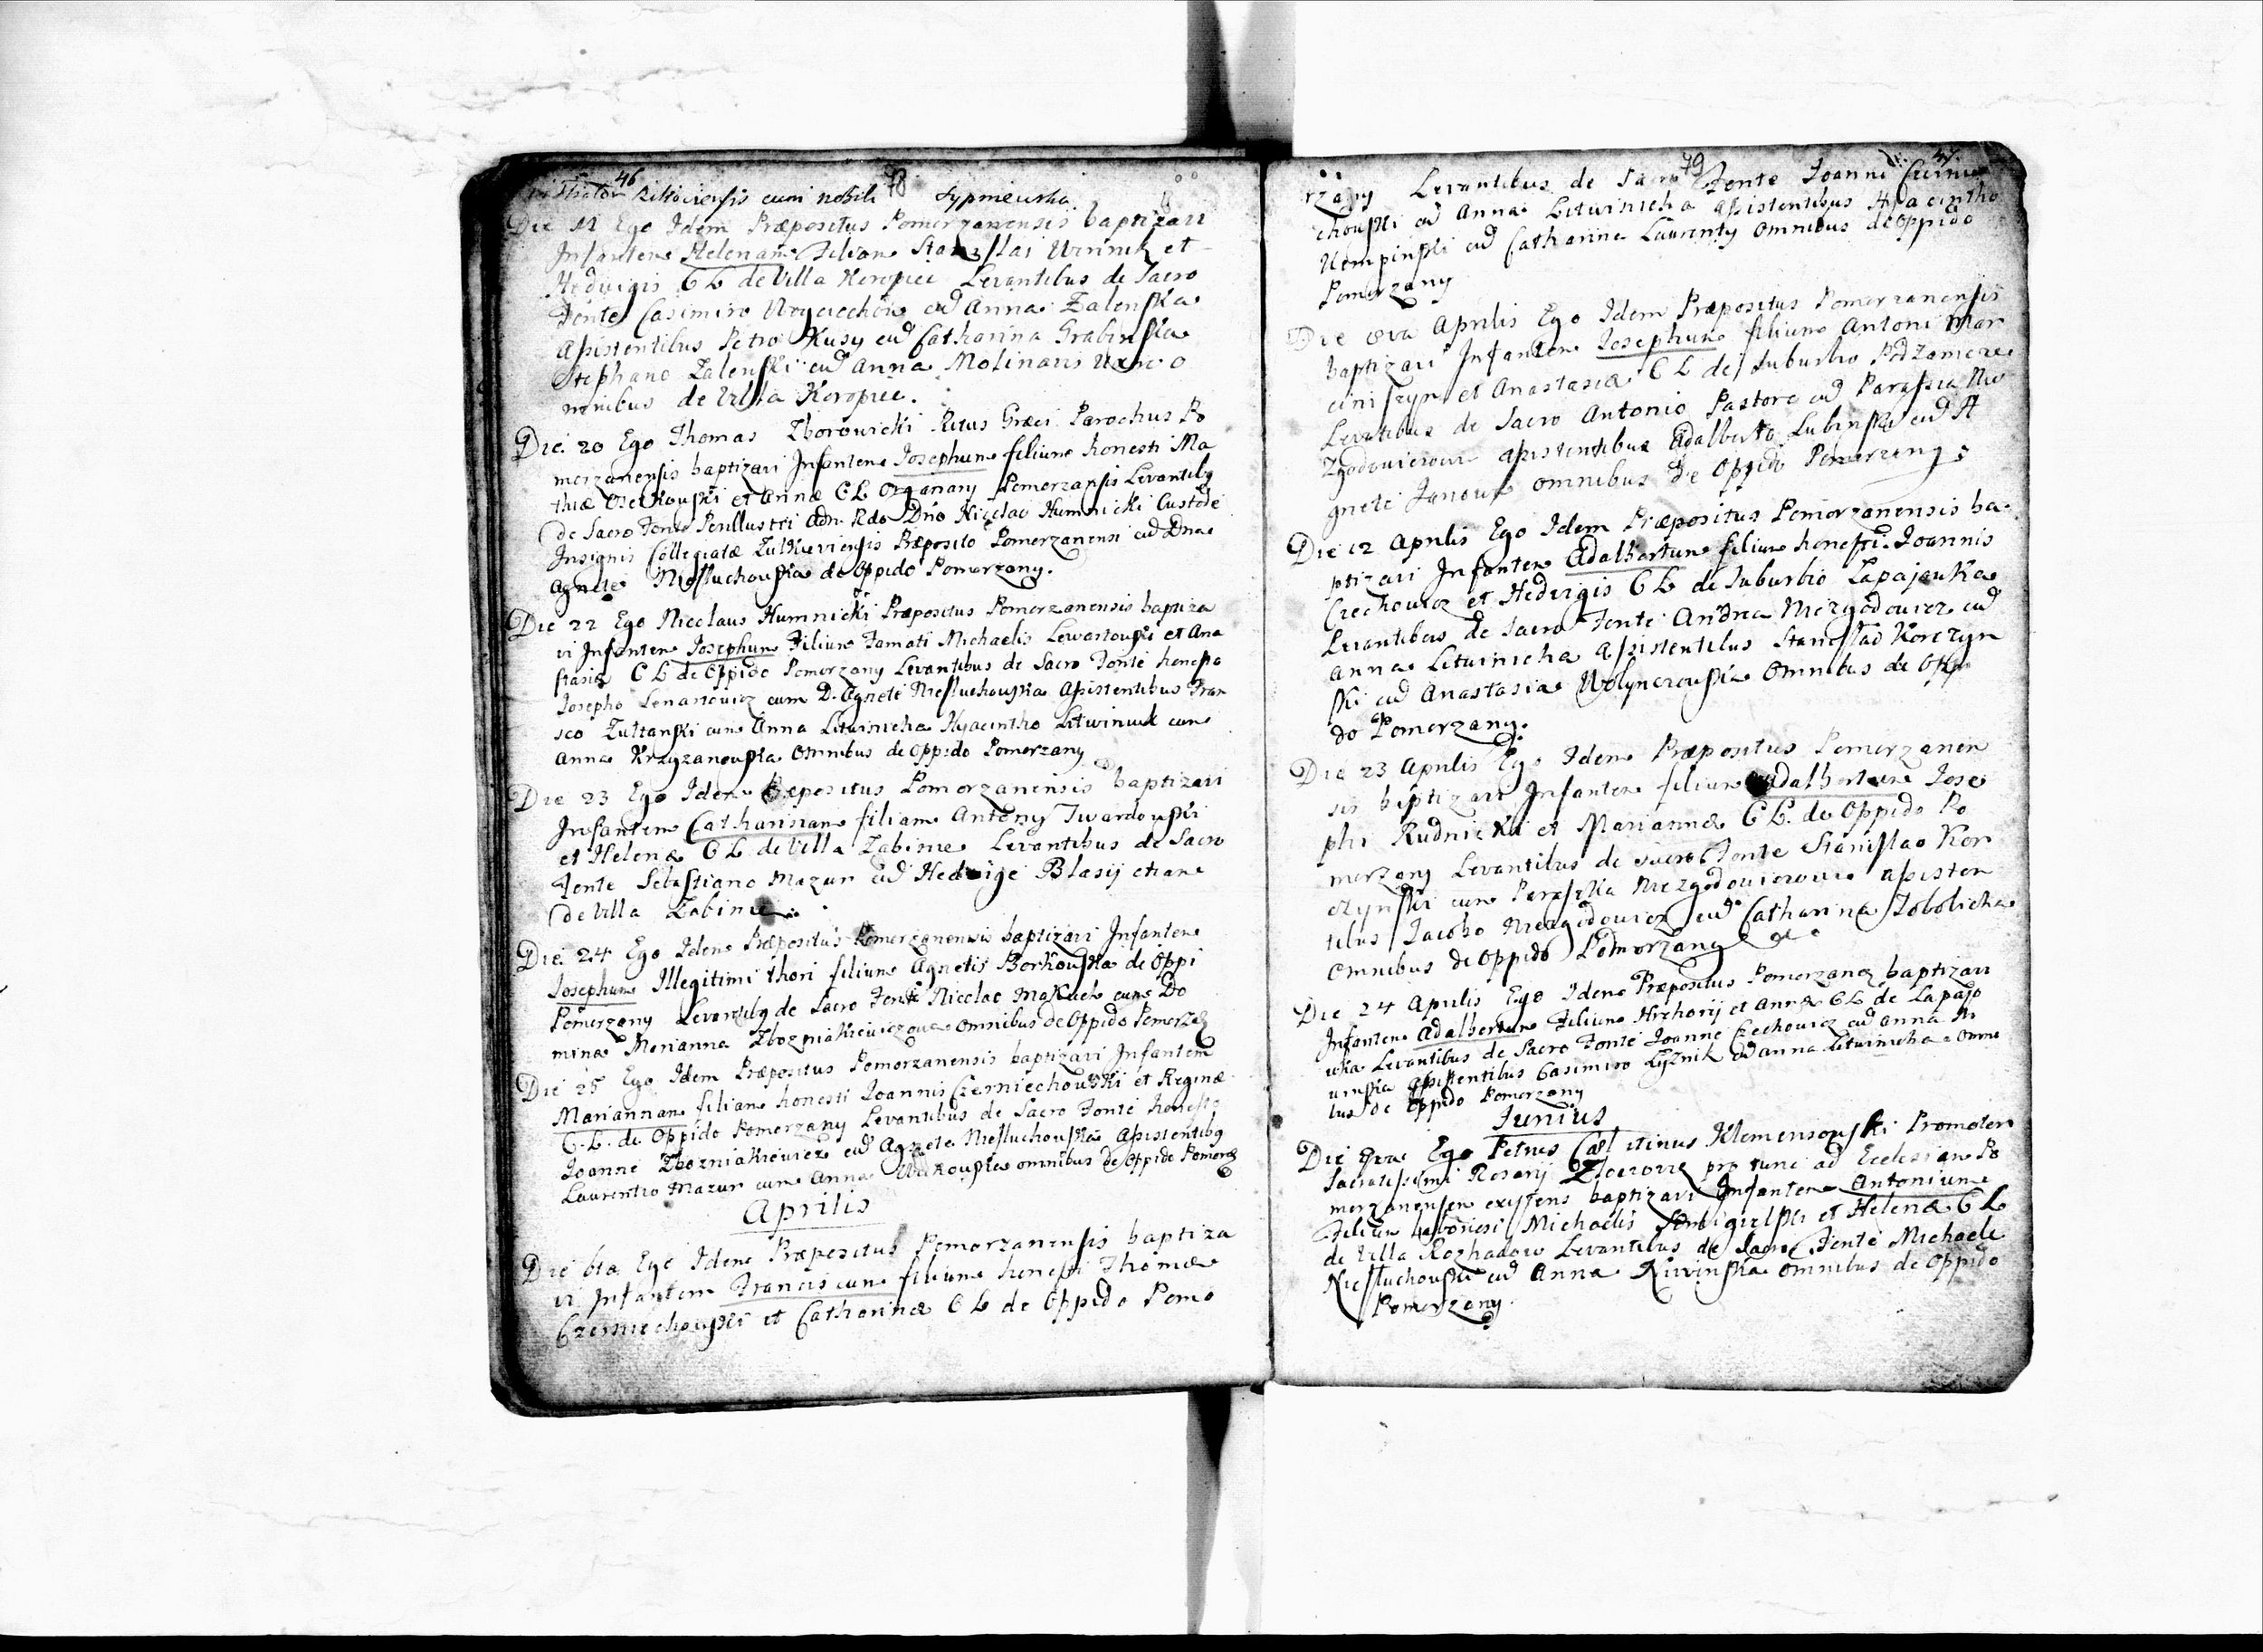 46
78
nistrator cum nobili Sypniewska
Die 11 Ego Idem Præpositus Pomorzanensis baptizavi
Infantem Helenam Filiam Stanislai et
Hedvigis C L de Villa Koropiec Levantibus de Sacro
Fonte Casimiro cũ Anna Zalenska
Assistentibus Petro Kusy cũ Catharina Grabinska
Stephano Zalenski cũ Anna Molinaris Uxore o
mnibus de Villa Koropiec.
Die 20 Ego Thomas Zborowicki Ritus Græci Parochus Po
morzanensis baptizavi Infantem Josephum filium honesti Ma
thiæ et Annæ C L Organarÿ Pomorzansis Levantibq
de Sacro Fonte Perillustri Adm Rdo Dño Nicolao Humnicki Custode
Insignis Collegiatæ Præposito Pomorzanensi cũ Dna
Agnete Niesluchouska de Oppido Pomorzany.
Die 22 Ego Nicolaus Humnicki Præpositus Pomorzanensis baptiza
vi Infantem Josephum Filium Famati Michaelis Lewartouski et Ana
stasiæ C L de Oppido Pomorzany Levantibus de Sacro Fonte honesto
Josepho Lenartowicz cum D. Agnete Niesluchouska Assistentibus Fran
sco Zultanski cum Anna Litwinicha Hyacintho Litwiniuk cum
Anna Krzyzanouska Omnibus de Oppido Pomorzany
Die 23 Ego Idem Præpositus Pomorzanensis baptizavi
Infantem Catharinam filiam Antony Twardouski
et Helenæ C L de Villa Zabinie Levantibus de Sacro
Fonte Sebastiano Mazur cũ Hedvige Blasij etiam
de Villa Zabinie
Die 24 Ego Idem Præpositus Pomorzanensis baptizavi Infantem
Josephum Illegitimi thori filium Agnetis Borkouska de Oppi
Pomorzany Levantibq de Sacro Fonte Nicolao Makuch cum Do
mina Marianna Zbozniakiewiczowa Omnibus de Oppido Pomorzã
Die 25 Ego Idem Præpositus Pomorzanensis baptizavi Infantem
Mariannam filiam honesti Joannis Czerniechouski et Reginæ
C. L. de Oppido Pomorzany Levantibus de Sacro Fonte honesto
Joanne Zbozniakiewicz cũ Agnete Niesluchouska Assistentibq
Laurentio Mazur cum Anna omnibus de Oppido Pomorz
Aprilis
Die 6ta Ego Idem Præpositus Pomorzanensis baptiza
vi Infantem Franciscum filium honesti Thomæ
Czerniechouski et Catharinæ C L de Oppido Pomo
79
47
rzany Levantibus de Sacro Fonte Joanne Czernie
chouski cũ Anna Litwinicha Assistentibus Hyacintho
Kempinski cũ Catharina Laurenty Omnibus de Oppido
Pomorzany
Die 8va Aprilis Ego Idem Præpositus Pomorzanensis
baptizavi Infantem Josephum filium Antoni Mar
ciniszyn et Anastasiæ C L de Suburbio Podzamcze
Levantibus de Sacro Antonio Pastore cũ Paraska Nie
zgodowiczowa Assistentibus Adalberto Lubinski cũ A
gnete Janowa omnibus de Oppido Pomorzany
Die 12 Aprilis Ego Idem Præpositus Pomorzanensis ba
ptizavi Infantem Adalbertum filium honesti Joannis
Czechowicz et Hedvigis C L de Suburbio Lapajouka
Levantibus de Sacro Fonte Andrea Niezgodowicz cũ
Anna Litwinicha Assistentibus Stanislao Korczyn
ski cũ Anastasia Wolyncouska Omnibus de Oppi
do Pomorzany.
Die 23 Aprilis Ego Idem Præpositus Pomorzanen
sis baptizavi Infantem filium Adalbertum Jose
phi Rudnicki et Mariannæ C L. de Oppido Po
morzany Levantibus de Sacro Fonte Stanislao Kor
czynski cum Paraska Niezgodowiczowa Assisten
tibus Jacobo Niezgodowicz cũ Catharina Sobolicha
Omnibus de Oppido Pomorzany
Die 24 Aprilis Ego Idem Præpositus Pomorzanẽ baptizavi
Infantem Adalbertum Filium Hrehorij et Annæ C L de Lapajo
uka Levantibus de Sacro Fonte Joanne Czechowicz cũ Anna
Assistentibus Casimiro Lyznik cũ Anna Litwinicha Omni
bus de Oppido Pomorzany
Junius
Die Ego Petrus Cælestinus Klemensouski Promotor
Sacratissimi Rosarÿ pro tunc ad Ecclesiam Po
morzanensem existens baptizavi Infantem Antonium
Filium Laboriosi Michaelis et Helenæ C L
de Villa Rozhadow Levantibus de Sacro Fonte Michaele
Niesluchouski cũ Anna omnibus de Oppido
Pomorzany.